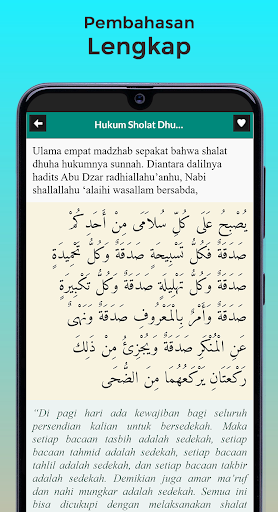 Pembahasan
Lengkap
Hukum Sholat Dhu...
Ulama empat madzhab sepakat bahwa shalat
dhuha hukumnya sunnah. Diantara dalilnya
hadits Abu Dzar radhiallahu'anhu, Nabi
shallallahu 'alaihi wasallam bersabda,
يُصْبِحُ عَلَى كُلِّ سُلَامَى مِنْ أَحَدِكُمْ
صَدَقَةٌ فَكُلُّ تَسْبِيحَةٍ صَدَقَةٌ وَكُلُّ تَحْمِيدَةٍ
صَدَقَةٌ وَكُلُّ تَهْلِيلَةٍ صَدَقَةٌ وَكُلُّ تَكْبِيرَةٍ
صَدَقَةٌ وَأَمْرٌ بِالْمَعْرُوفِ صَدَقَةٌ وَنَهْىٌ
عَنِ الْمُنْكَرِ صَدَقَةٌ وَيُجْزِئُ مِنْ ذَلِكَ
رَكْعَتَانِ يَرْكَعُهُمَا مِنَ الضُّحَى
"Di pagi hari ada kewajiban bagi seluruh
persendian kalian untuk bersedekah. Maka
setiap bacaan tasbih adalah sedekah, setiap
bacaan tahmid adalah sedekah, setiap bacaan
tahlil adalah sedekah, dan setiap bacaan takbir
adalah sedekah. Demikian juga amar ma'ruf
dan nahi mungkar adalah sedekah. Semua ini
bisa dicukupi dengan melaksanakan shalat